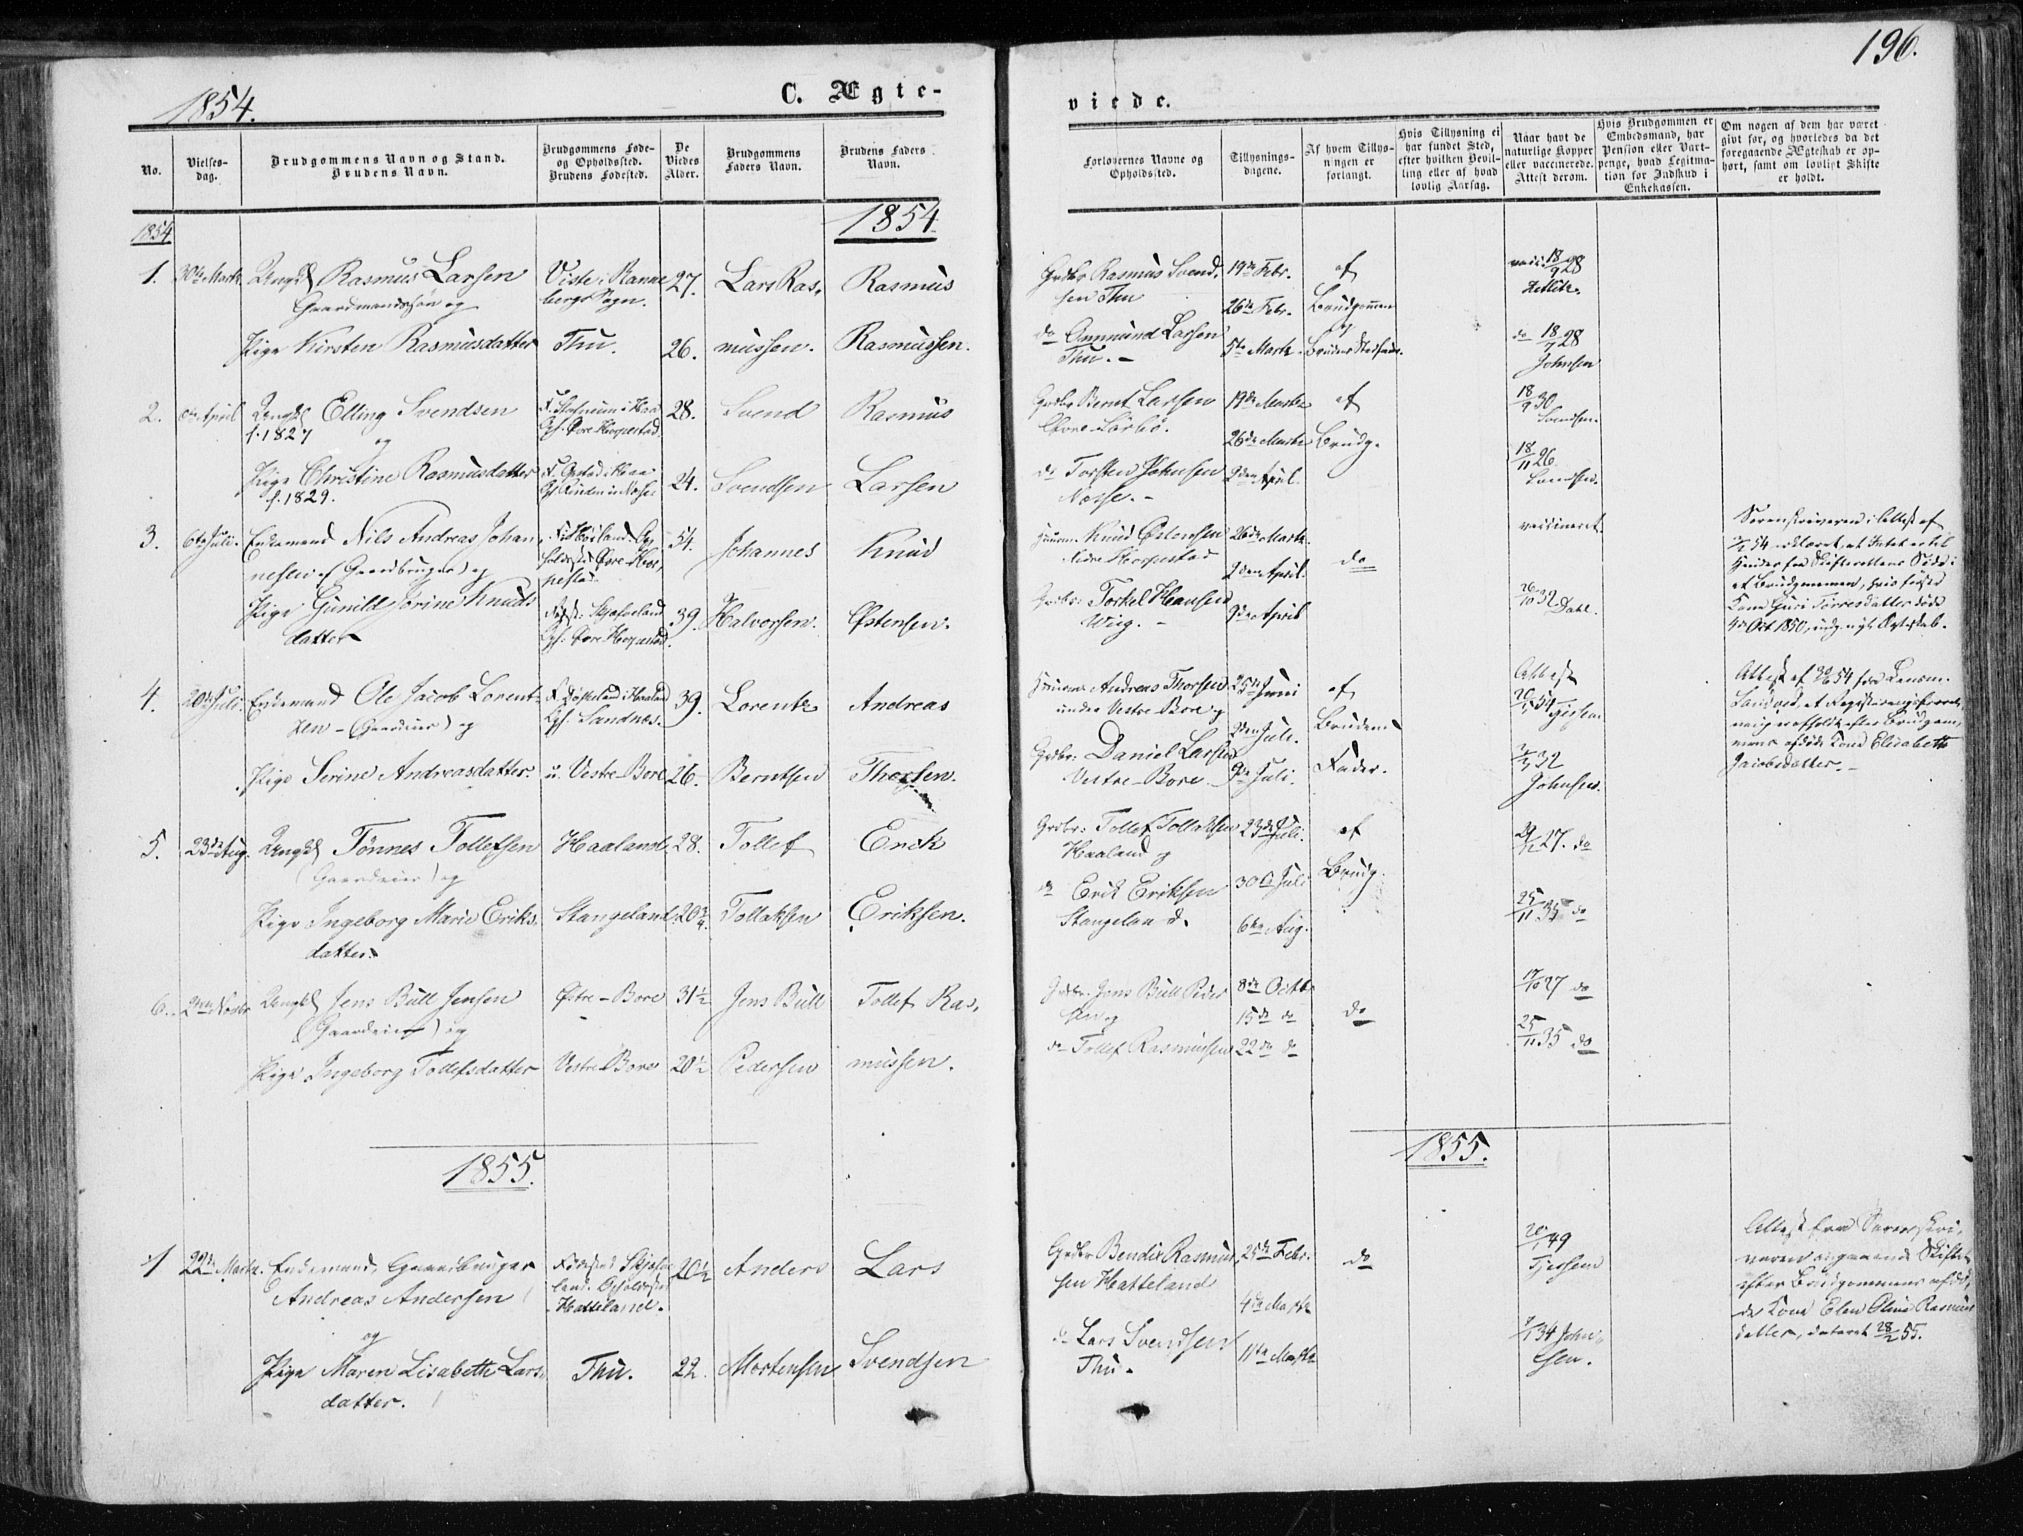 196.
1854.
C. Ægte-
viede.
No.
Vielses-
dag.
Brudgommens Navn og Stand.
Brudens Navn.
Brudgommens Føde-
og Opholdssted.
Brudens Fødested.
De
Viedes
Alder.
Brudgommens
Faders Navn.
Brudens Faders
Navn.
Forlovernes Navne og
Opholdssted.
Tillysnings-
dagene.
Af hvem Tillys-
ningen er
forlangt.
Hvis Tillysning ei
har fundet Sted,
efter hvilken Bevil-
ling eller af hvad
lovlig Aarsag.
Naar havt de
naturlige Kopper
eller vaccinerede.
Attest derom.
Hvis Brudgommen er
Embedsmand, har
Pension eller Vart-
penge, hvad Legitma-
tion for Indskud i
Enkekassen.
Om nogen af dem har været
gift før, og hvorledes da det
foregaaende Ægteskab er op-
hørt, samt om lovligt Skifte
er holdt.
1854
1854
1. 30te Marts Ungk. Rasmus Larsen
Gaardmandssøn og
Viste i Ranne
bergs Sogn.
27. Lars Ras-
Rasmus
Grdbr Rasmus Svend-
sen Thu
19de Febr.
26de Febr.
af
Brudgommen
og
18/9 28
Pige Kirsten Rasmusdatter
Thu.
26. mussen.
Rasmussen.
do Ommund Larsen
Thu. -
5te Marts
do 18/9 28
Johnsen
2. April Ungk. Elling Svendsen
f. 1827 og
28. Svend
Rasmus
Grdbr Bernt Larsen
19de Marts
26de Marts
af
Brudg.
18/9 30
Svendsen.
Pige Christine Rasmusdatter
f. 1829.
24. Svendsen
Larsen
do Torsten Johnsen
Nosse. -
2den April.
18/11 26
3. 6te Juli. Enkemand Nils Andreas Johan
nesen (Gaardbruger) og
54. Johannes
Knud
Knud Østensen
26de Marts
2den April.
do
vaccineret
Pige Gunild Jorine Knuds
datter
39. Halvorsen.
Østensen.
Grdbr: Torkel Hansen
Wiig. -
9de April
26/10 32 Dahl.
Kone Guri Torresdatter døde
4de Oct 1850, indg. nyt Ægteskab.
4. 20de Juli. Enkemand Ole Jacob Lorent-
zen - (Gaardeier) og
Sandnes.
39. Lorentz
Andreas
Andreas Thorsen
under Vestre Bore og
25de Juni
2den Juli.
af
Brudens
Fader.
Attest
Pige Serine Andreasdatter.
u. Vestre-Bore
26. Berntsen
Thorsen.
Grdbr: Daniel Larsen
Vestre-Bore
9de Juli.
Johnsen.
mens afdøde Kone Elisabeth
Jacobsdatter. -
5. 23de Aug. Ungk. Tönnes Tollefsen
(Gaardeier) og
Haaland.
28. Tollef
Erick
Grdbr: Tollef Tollaksen
Haaland og
23de Juli.
30te Juli
af
Brudg.
27. do
Pige Ingeborg Marie Eriks-
datter
Stangeland
20 Tollaksen
Eriksen.
do Erik Eriksen
Stangeland.
6te Aug.
25/11 35 do
6. 2den Novbr Ungk. Jens Bull Jensen
(Gaardeier) og
Østre-Bore
31½ Jens Bull
Tollef Ras-
Grdbr. Jens Bull Peder
sen og
8de Octbr
15de do
do
27 do
Pige Ingeborg Tollefsdatter
Vestre Bore
20½ Pedersen
mussen.
do Tollef Rasmussen
22de do
25/11 35 do
1855.
1855.
1 22de Marts. Enkemand, Gaardbruger
Andreas Andersen
og
Hatteland.
20½ Anders
Lars
Grdbr Bendix Rasmus-
sen Hatteland
25de Febr.
4de Marts
do
49
Tjersem
Attest fra Sorenskri-
veren angaaende Skiftet
efter Brudgommens afdø-
de Kone Elen Oline Rasmus
datter, dateret 28/2 55.
Pige Maren Lisabeth Lars-
datter.
Thu.
22. Mortensen
Svendsen
do Lars Svendsen
Thu.
11te Marts
34 John-
sen.